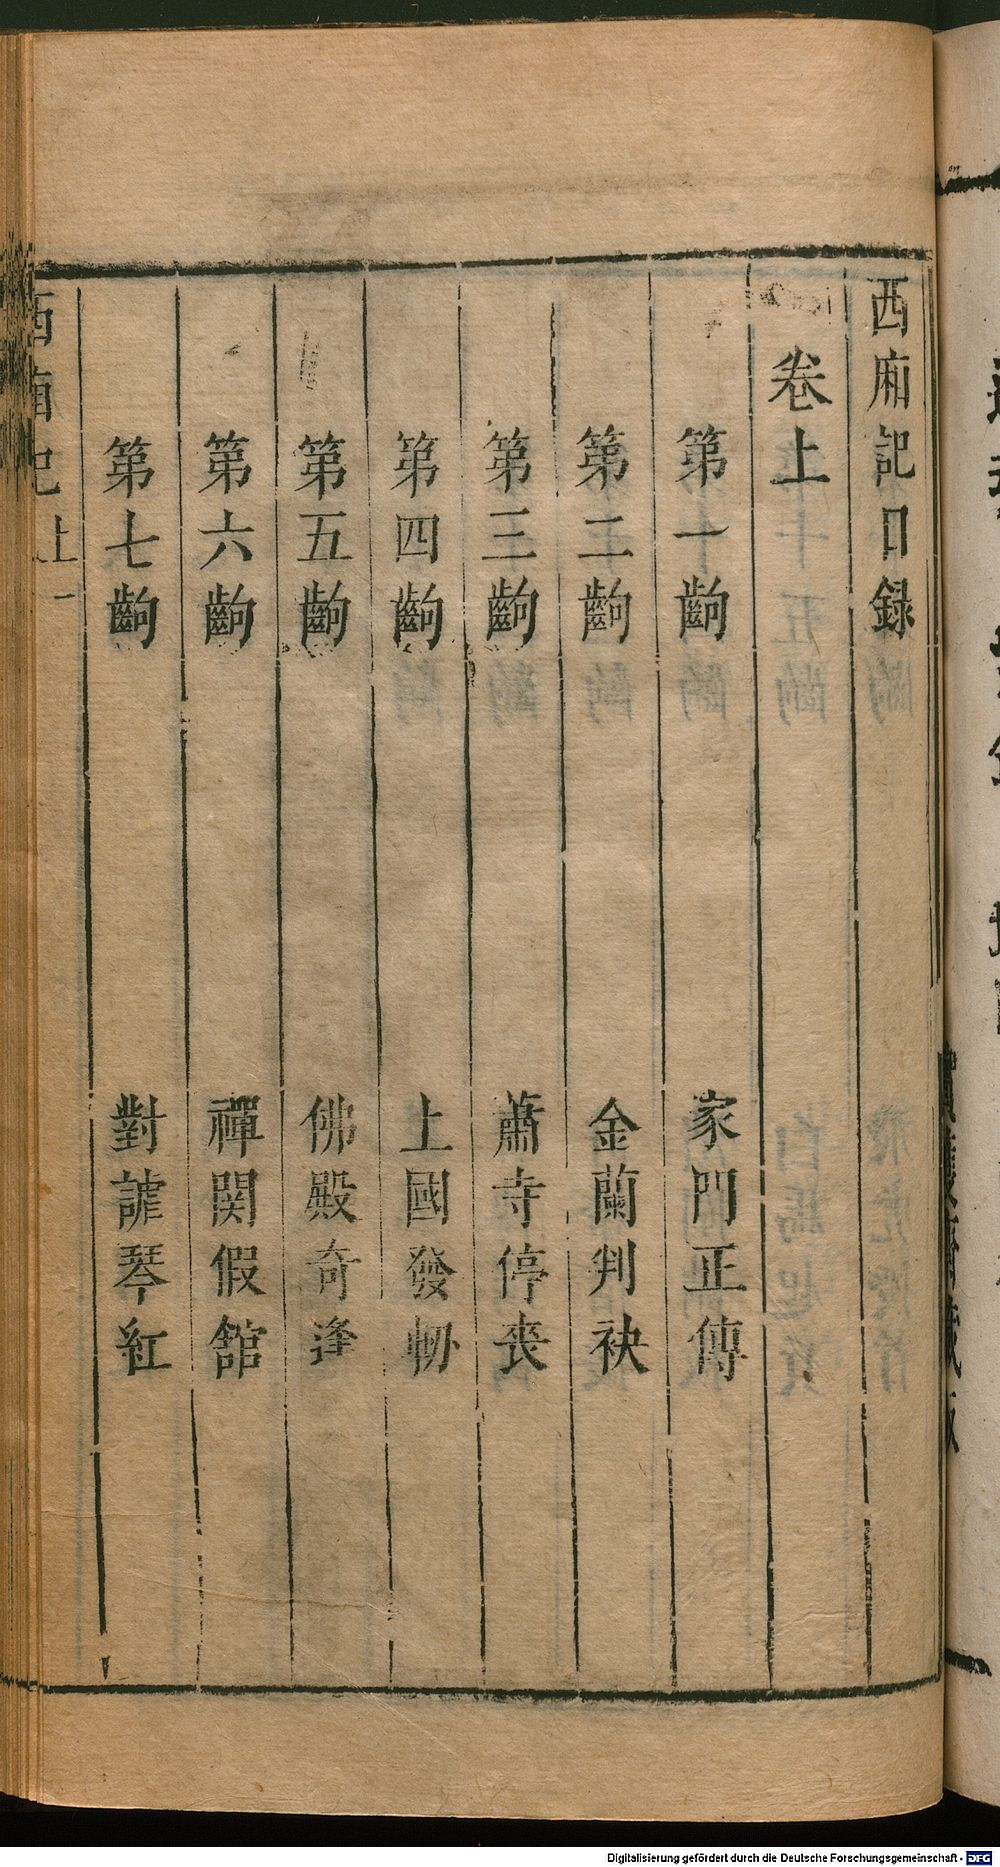 西廂記目録
卷上
第一齣 家門正傳
第二齣 金蘭判袂
第三齣 蕭寺停喪
第四齣 上國發軔
第五齣 佛殿奇逢
第六齣 禪関假舘
第七齣 對謔琴紅
西廂記 上 一
Digitalisierung gefördert durch die Deutsche Forschungsgemeinschaft - DFG